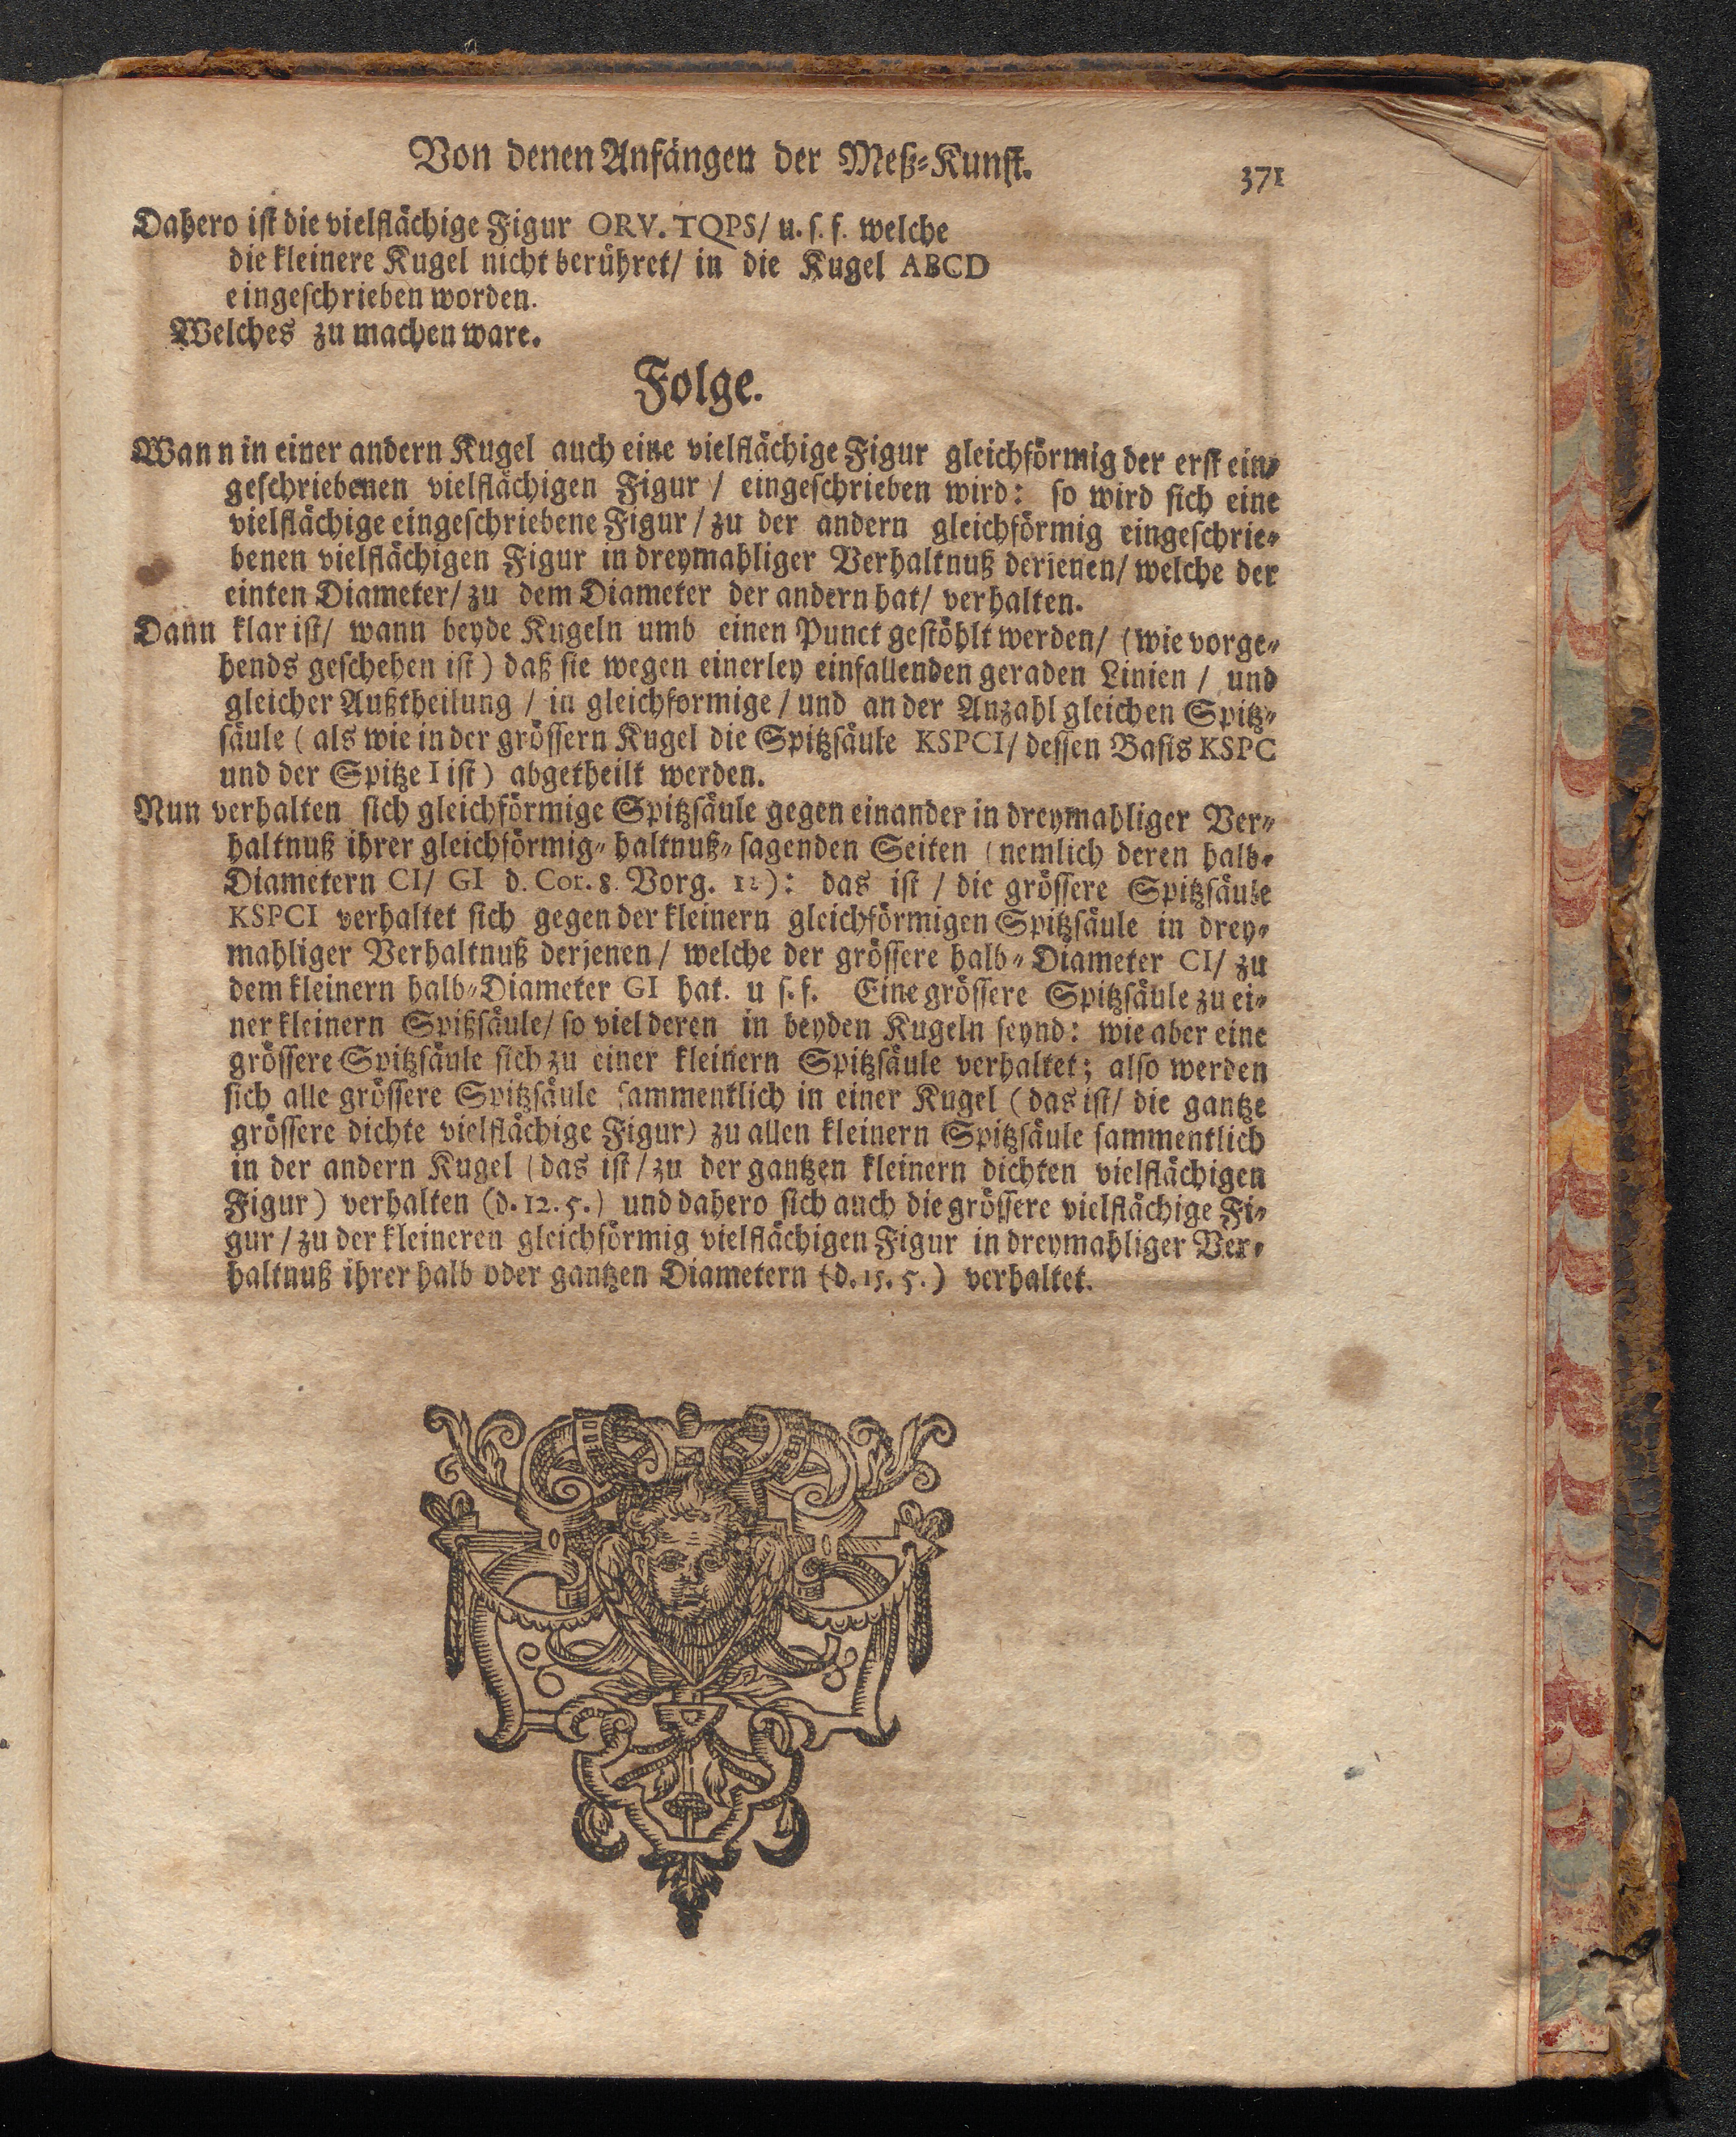 Von denen Anfängen der Meß-Kunst.
371
Dahero ist die vielflächige Figur ORV. TQPS/ u. s. f. welche
die kleinere Kugel nicht berühret/ in die Kugel ABCD
eingeschrieben worden.
Welches zu machen ware.
Folge.
Wann in einer andern Kugel auch eine vielflächige Figur gleichförmig der erst ein-
geschriebenen vielflächigen Figur / eingeschrieben wird: so wird sich eine
vielflächige eingeschriebene Figur / zu der andern gleichförmig eingeschrie-
benen vielflächigen Figur in dreymahliger Verhaltnuß derjenen/ welche der
einten Diameter/ zu dem Diameter der andern hat/ verhalten.
Dann klar ist/ wann beyde Kugeln umb einen Punct gestöhlt werden/ (wie vorge-
hends geschehen ist) daß sie wegen einerley einfallenden geraden Linien / und
gleicher Außtheilung / in gleichformige / und an der Anzahl gleichen Spitz-
säule (als wie in der grössern Kugel die Spitzsäule KSPCI/ dessen Basis KSPC
und der Spitze I ist) abgetheilt werden.
Nun verhalten sich gleichförmige Spitzsäule gegen einander in dreymahliger Ver-
haltnuß ihrer gleichförmig-haltnuß-sagenden Seiten (nemlich deren halb-
Diametern CI/ GI d. Cor. 8. Vorg. 12): das ist / die grössere Spitzsäule
KSPCI verhaltet sich gegen der kleinern gleichförmigen Spitzsäule in drey-
mahliger Verhaltnuß derjenen/ welche der grössere halb-Diameter CI/ zu
dem kleinern halb-Diameter GI hat. u s. f. Eine grössere Spitzsäule zu ei-
ner kleinern Spitzsäule/ so viel deren in beyden Kugeln seynd: wie aber eine
grössere Spitzsäule sich zu einer kleinern Spitzsäule verhaltet; also werden
sich alle grössere Spitzsäule sammentlich in einer Kugel (das ist/ die gantze
grössere dichte vielflächige Figur) zu allen kleinern Spitzsäule sammentlich
in der andern Kugel (das ist / zu der gantzen kleinern dichten vielflächigen
Figur) verhalten (d. 12. 5.) und dahero sich auch die grössere vielflächige Fi-
gur / zu der kleineren gleichförmig vielflächigen Figur in dreymahliger Ver-
haltnuß ihrer halb oder gantzen Diametern (d. 15. 5.) verhaltet.